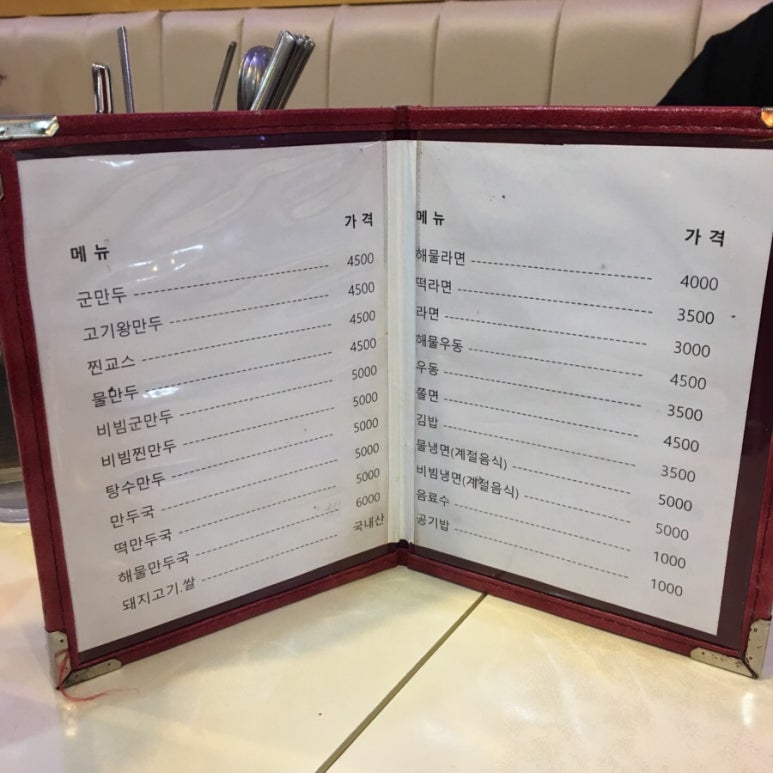 메뉴 가격
군만두 4500
고기왕만두 4500
찐교스 4500
물만두 4500
비빔군만두 5000
비빔찐만두 5000
탕수만두 5000
만두국 5000
떡만두국 5000
해물만두국 6000
돼지고기.쌀 국내산
메뉴 가격
해물라면 4000
떡라면 3500
라면 3000
해물우동 4500
우동 3500
쫄면 4500
김밥 3500
물냉면(계절음식) 5000
비빔냉면(계절음식) 5000
음료수 1000
공기밥 1000